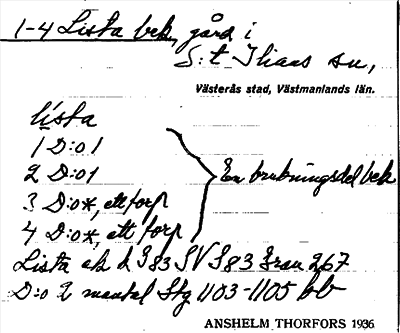 1-4 Lista bek, gård i
S:t Ilians sn,
Västerås stad, Västmanlands län.
lista
1 D:o 1
2 D:o 1
3 D:o*, ett torp
4 D:o*, ett torp
En brukningsdel bek
Lista ak L 983 SV 983 Gran 267
D:o 2 mantal Stg 1103-1105 bb
ANSHELM THORFORS 1936